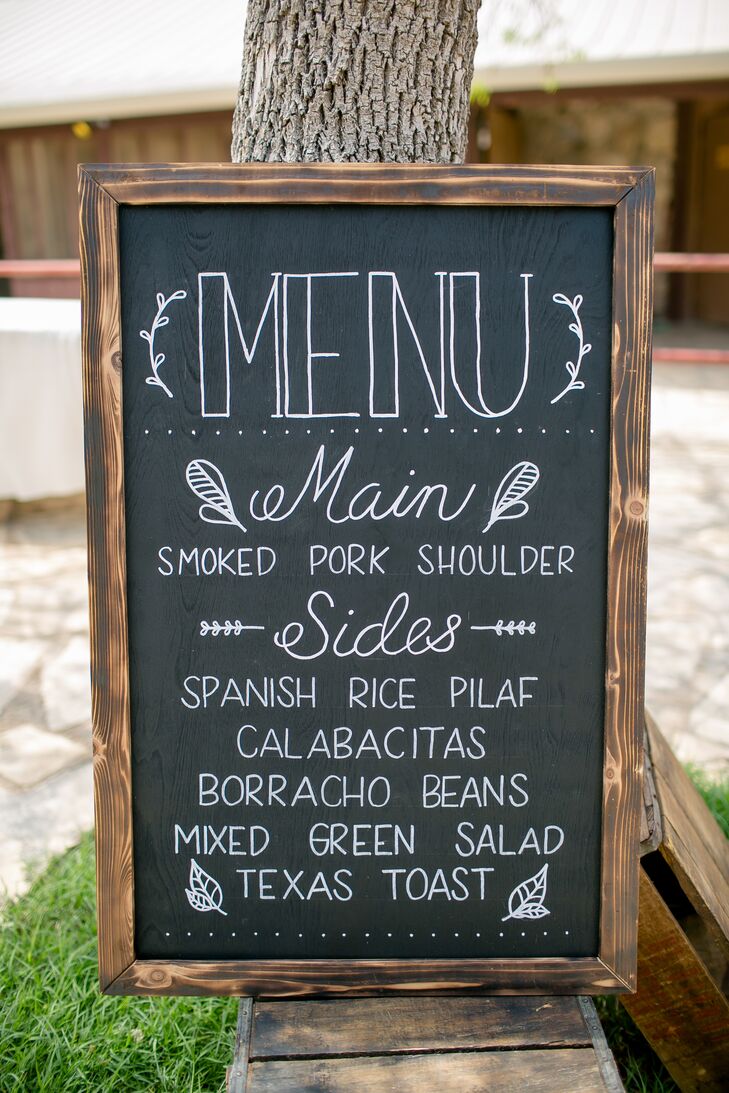 MENU
Main
SMOKED PORK SHOULDER
Sides
SPANISH RICE PILAF
CALABACITAS
BORRACHO BEANS
MIXED GREEN SALAD
TEXAS TOAST